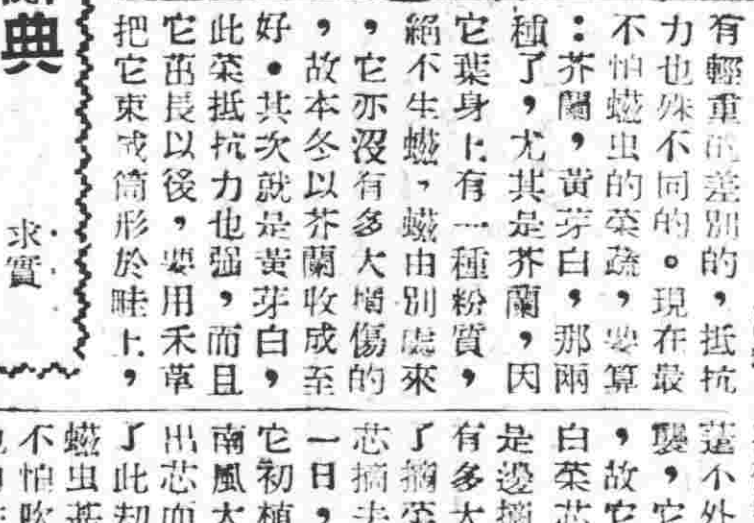 有輕重的差別的，抵抗
力也殊不同的。現在最
不怕螆虫的菜蔬，要算
：芥蘭，黃芽白，那兩
種了，尤其是芥蘭，因
它葉身上有一種粉質，
絕不生螆，螆由別處來
，它亦沒有多大損傷的
，故本冬以芥蘭收成至
好。其次就是黃芽白，
此菜抵抗力也强，而且
它茁長以後，要用禾草
把它束成筒形於畦上，
典
求實
不外
襲，它
，故它
白菜芯
是邊摘
有多大
了摘菜
芯摘
一日，
它初植
南風大
出芯而
了此
螆虫
不怕